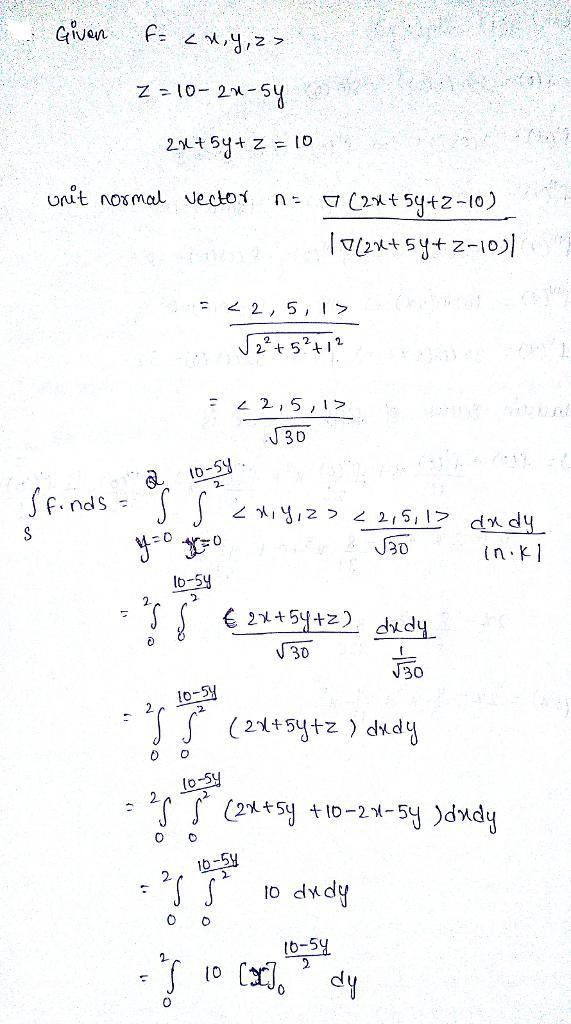 Given F = < x, y, z >
z = 10 - 2x - 5y
2x + 5y + z = 10
unit normal vector n = ∇(2x + 5y + z - 10) / |∇(2x + 5y + z - 10)|
= < 2, 5, 1 > / √(2² + 5² + 1²)
= < 2, 5, 1 > / √30
∫_S F.nds = ∫_{y=0}^{2} ∫_{x=0}^{(10-5y)/2} < x, y, z > < 2, 5, 1 > / √30 dxdy / |n.k|
= ∫_0^2 ∫_0^{(10-5y)/2} (2x + 5y + z) / √30 dxdy / (1/√30)
= ∫_0^2 ∫_0^{(10-5y)/2} (2x + 5y + z) dxdy
= ∫_0^2 ∫_0^{(10-5y)/2} (2x + 5y + 10 - 2x - 5y) dxdy
= ∫_0^2 ∫_0^{(10-5y)/2} 10 dxdy
= ∫_0^2 10 [x]_0^{(10-5y)/2} dy